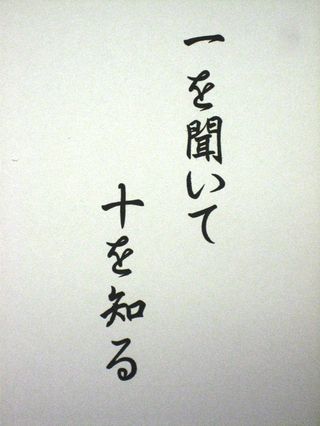 一を聞いて
十を知る